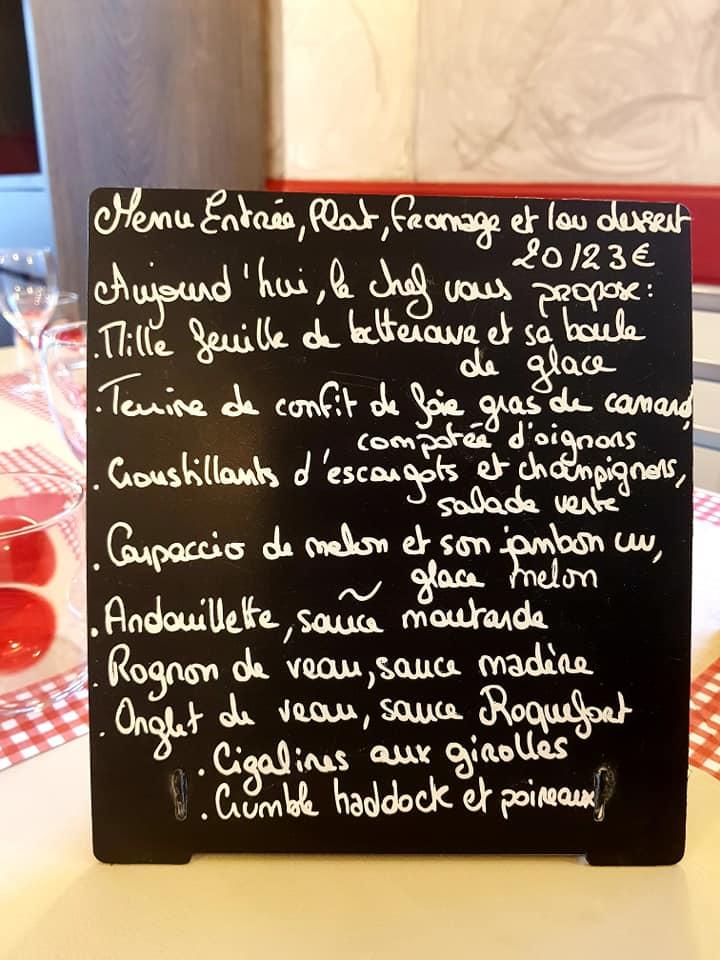 Menu Entrée, Plat, Fromage et/ou dessert
20/23€
Aujourd'hui, le chef vous propose :
. Mille feuille de betterave et sa boule
de glace
. Terrine de confit de foie gras de canard,
compotée d'oignons
. Croustillants d'escargots et champignons,
salade verte
. Carpaccio de melon et son jambon cru,
glace melon
~
. Andouillette, sauce moutarde
. Rognon de veau, sauce madère
. Onglet de veau, sauce Roquefort
. Cigalines aux girolles
. Crumble haddock et poireaux